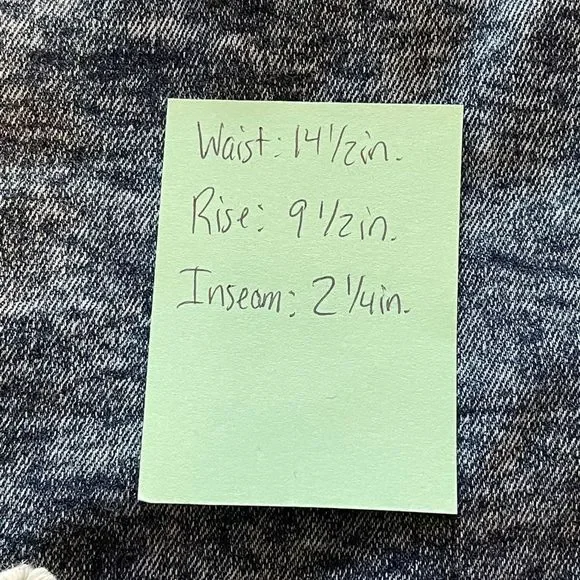 Waist: 14 1/2in.
Rise: 9 1/2in.
Inseam: 2 1/4in.